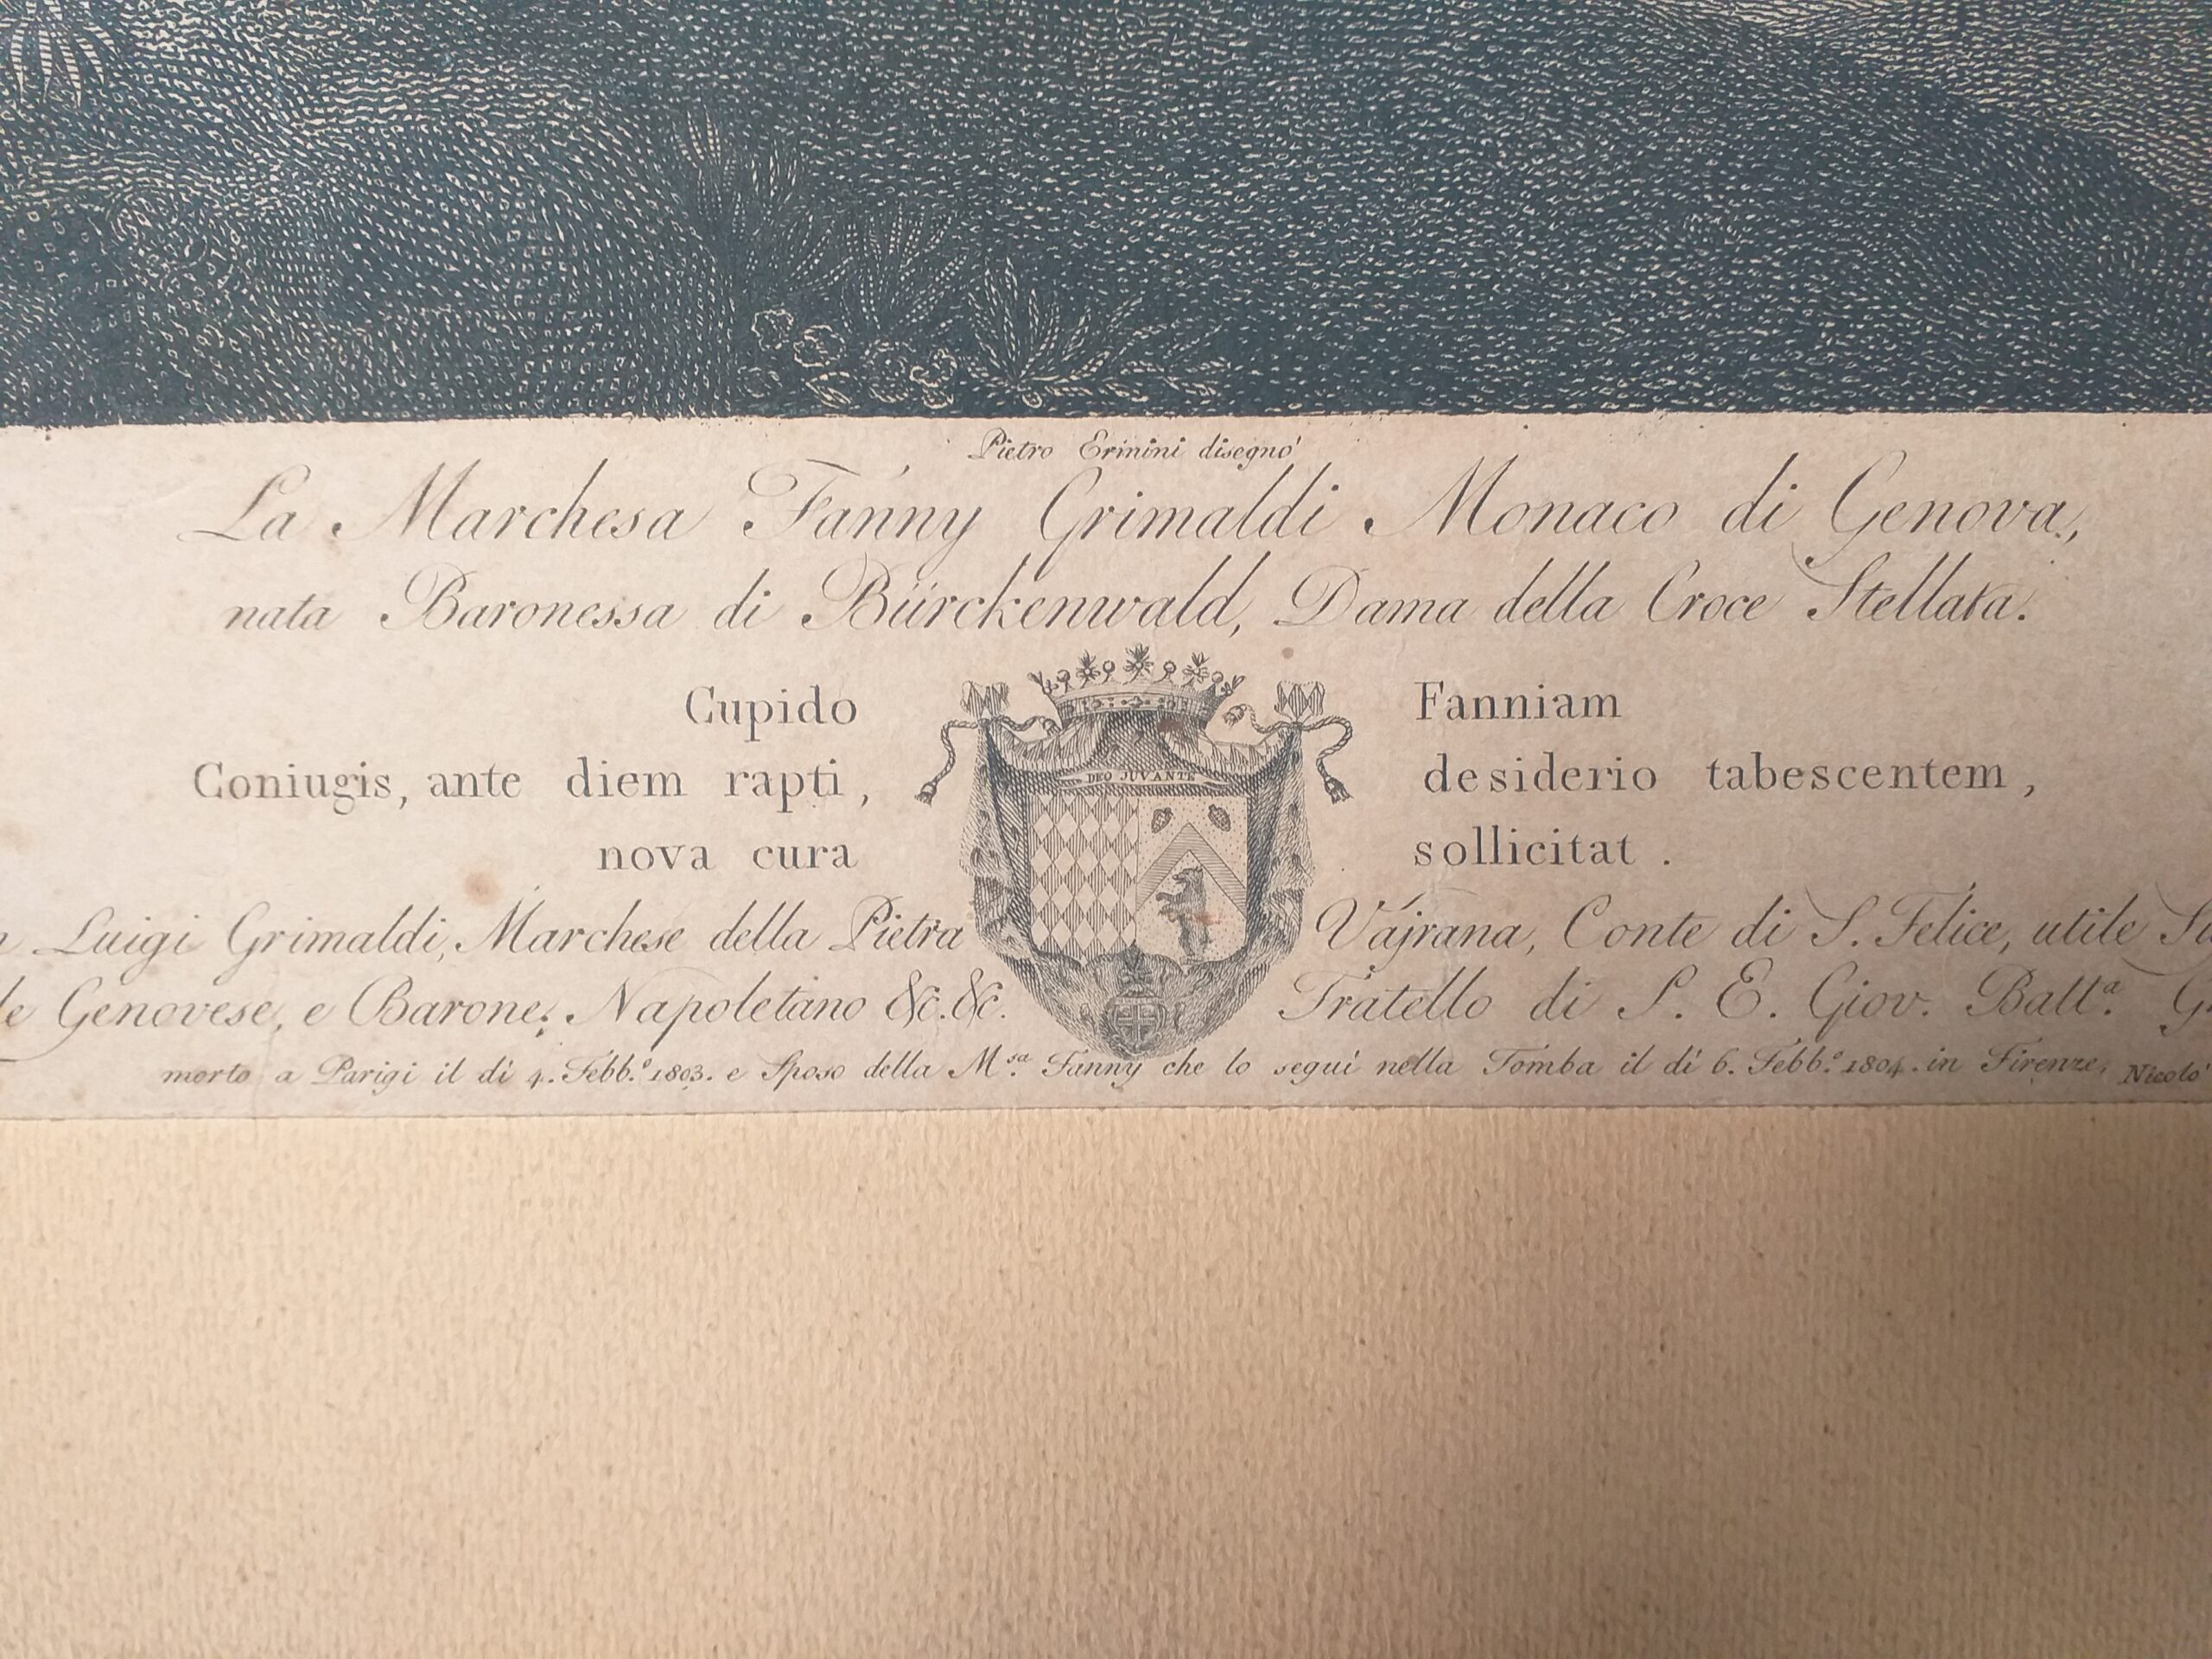 Pietro Erinini disegnò
La Marchesa Fanny Grimaldi Monaco di Genova,
nata Baronessa di Bürckenwald, Dama della Croce Stellata.
Cupido Fanniam
Coniugis, ante diem rapti, desiderio tabescentem,
nova cura sollicitat.
DEO JUVANTE
Luigi Grimaldi, Marchese della Pietra Vajrana, Conte di S. Felice, utile
Genovese, e Barone Napoletano &c. &c. Fratello di S. E. Giov. Batt.a
morto a Parigi il dì 4. Febb.o 1803. e Sposo della M.sa Fanny che lo seguì nella Tomba il dì 6. Febb.o 1804. in Firenze, Nicolò